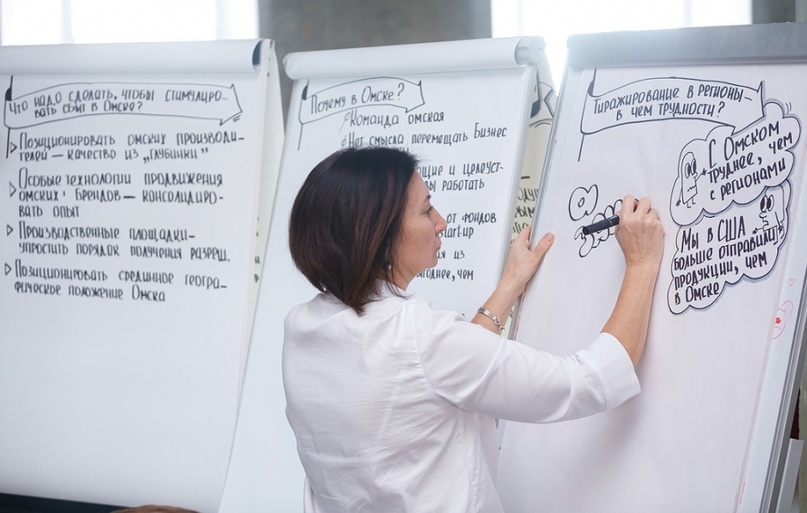 Что надо сделать, чтобы стимулиро-
вать сбыт в Омске?
Позиционировать омских производи-
телей — качество из „глубинки”
Особые технологии продвижения
омских брендов — консолидиро-
вать опыт
Производственные площадки-
упростить порядок получения разреш.
Позиционировать срединное геогра-
фическое положение Омска
Почему в Омске?
Команда омская
Нет смысла перемещать бизнес
и целеуст-
работать
от фондов
startup
из
чем
Тиражирование в регионы —
в чем трудности?
С Омском
труднее, чем
с регионами
Мы в США
больше отправили
продукции, чем
в Омске